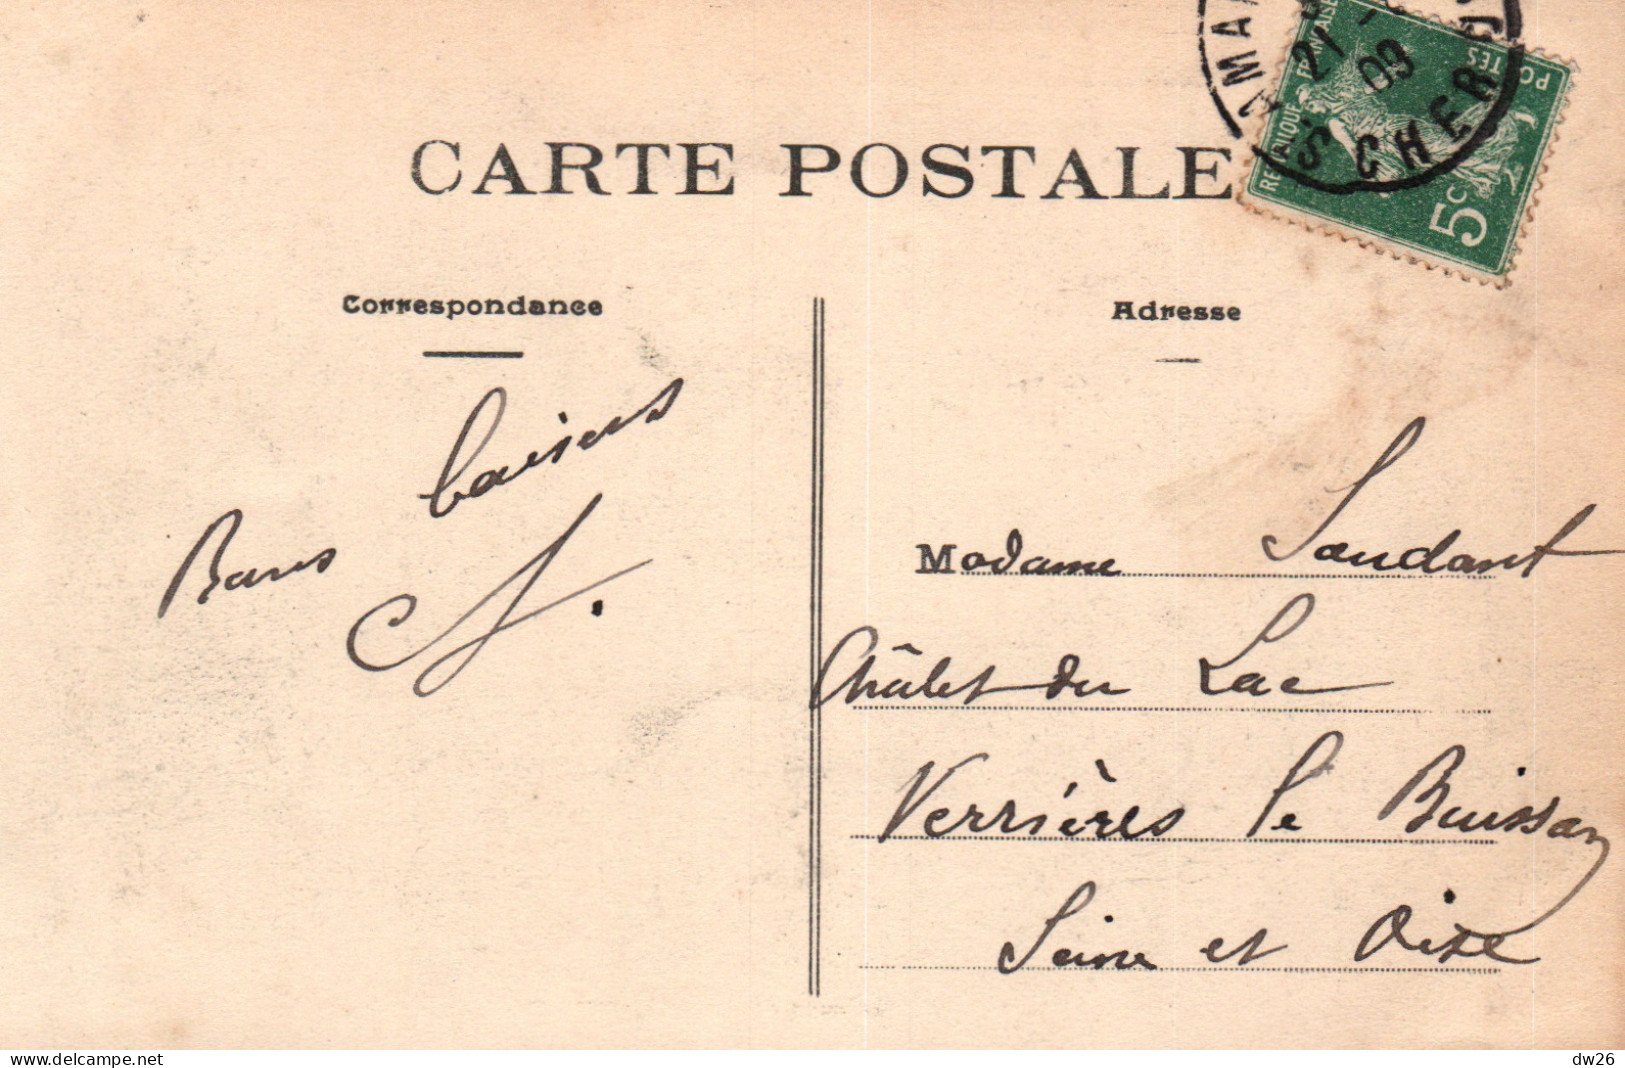 CARTE POSTALE
21
09
CHER
REPUBLIQUE FRANÇAISE
POSTES
5c
Correspondance
Adresse
Bons baisers
Madame Soudant
Châlet du Lac
Verrières le Buisson
Seine et Oise
www.delcampe.net
dw26